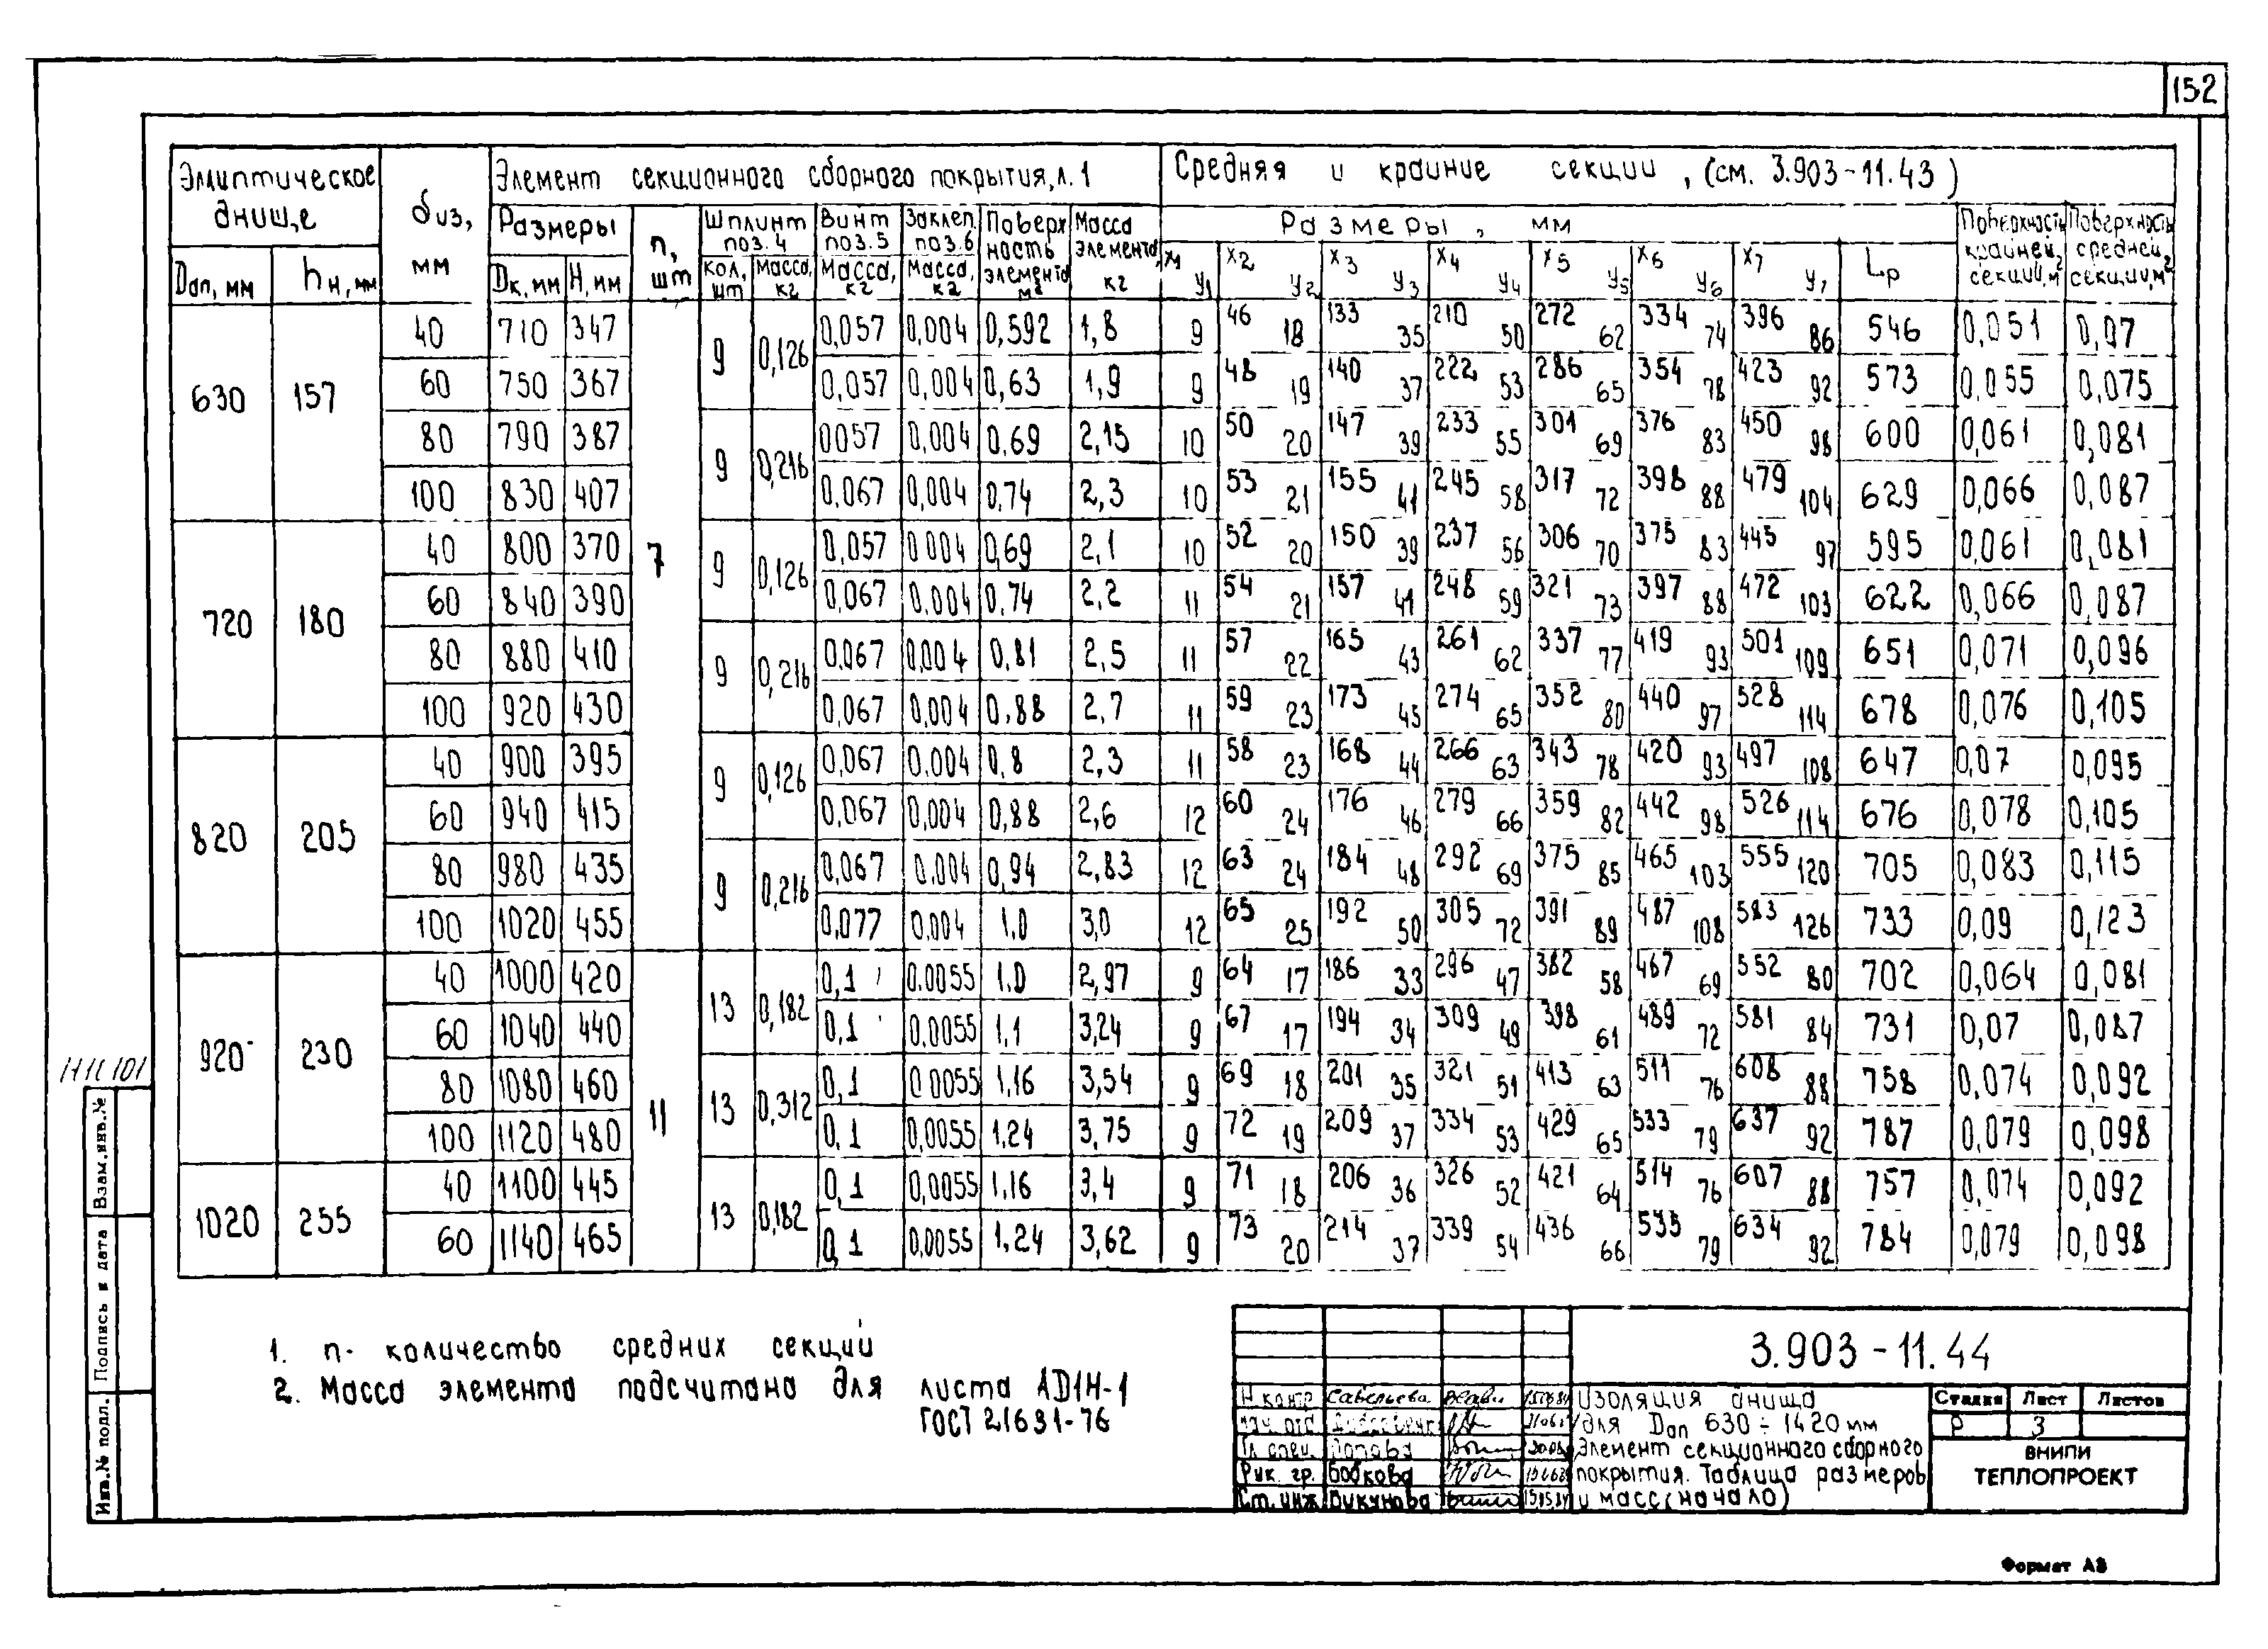 152
Эллиптическое днище
δиз, мм
Элемент секционного сборного покрытия, л. 1
Средняя и крайние секции, (см. 3.903-11.43)
Размеры
n, шт
Шплинт поз. 4
Винт поз. 5
Заклеп. поз. 6
Поверхность элемента м²
Масса элемента, кг
Размеры, мм
Поверхность крайней секции, м²
Поверхность средней секции, м²
Dап, мм hн, мм Dк, мм H, мм кол, шт Масса, кг Масса, кг Масса, кг x1 y1 x2 y2 x3 y3 x4 y4 x5 y5 x6 y6 x7 y7 Lр
630 157 40 710 347 7 9 0,126 0,057 0,004 0,592 1,8 9 46 18 133 35 210 50 272 62 334 74 396 86 546 0,051 0,07
60 750 367 0,057 0,004 0,63 1,9 9 48 19 140 37 222 53 286 65 354 78 423 92 573 0,055 0,075
80 790 387 9 0,216 0057 0,004 0,69 2,15 10 50 20 147 39 233 55 301 69 376 83 450 98 600 0,061 0,081
100 830 407 0.067 0,004 0,74 2,3 10 53 21 155 41 245 58 317 72 398 88 479 104 629 0,066 0,087
720 180 40 800 370 9 0,126 0,057 0.004 0,69 2,1 10 52 20 150 39 237 56 306 70 375 83 445 97 595 0,061 0,081
60 840 390 0,067 0.004 0,74 2,2 11 54 21 157 41 248 59 321 73 397 88 472 103 622 0,066 0,087
80 880 410 9 0,216 0,067 0,004 0,81 2,5 11 57 22 165 43 261 62 337 77 419 93 501 109 651 0,071 0,096
100 920 430 0,067 0,004 0.88 2,7 11 59 23 173 45 274 65 352 80 440 97 528 114 678 0,076 0,105
820 205 40 900 395 9 0,126 0,067 0.004 0,8 2,3 11 58 23 168 44 266 63 343 78 420 93 497 108 647 0,07 0,095
60 940 415 0,067 0,004 0,88 2,6 12 60 24 176 46 279 66 359 82 442 98 526 114 676 0,078 0,105
80 980 435 9 0,216 0,067 0.004 0,94 2,83 12 63 24 184 48 292 69 375 85 465 103 555 120 705 0,083 0,115
100 1020 455 0,077 0.004 1.0 3,0 12 65 25 192 50 305 72 391 89 487 108 583 126 733 0,09 0,123
920 230 40 1000 420 11 13 0,182 0,1 0.0055 1.0 2,97 9 64 17 186 33 296 47 382 58 467 69 552 80 702 0,064 0,081
60 1040 440 0,1 0.0055 1,1 3,24 9 67 17 194 34 309 49 398 61 489 72 581 84 731 0,07 0,087
80 1080 460 13 0,312 0,1 0 0055 1,16 3,54 9 69 18 201 35 321 51 413 63 511 76 608 88 758 0,074 0,092
100 1120 480 0,1 0,0055 1,24 3,75 9 72 19 209 37 334 53 429 65 533 79 637 92 787 0,079 0,098
1020 255 40 1100 445 13 0,182 0,1 0,0055 1,16 3,4 9 71 18 206 36 326 52 421 64 514 76 607 88 757 0,074 0,092
60 1140 465 0,1 0,0055 1,24 3,62 9 73 20 214 37 339 54 436 66 535 79 634 92 784 0,079 0,098
1. n - количество средних секций
2. Масса элемента подсчитана для листа АД1Н-1
ГОСТ 21631-76
3.903-11.44
Н контр Савельева
Нач отд
Гл спец. Попова
Рук. гр. Бобкова
Ст. инж
Изоляция днища
для Dап 630÷1420 мм
Элемент секционного сборного
покрытия. Таблица размеров
и масс (начало)
Стадия Лист Листов
Р 3
ВНИПИ
ТЕПЛОПРОЕКТ
Формат А3
Взам.инв.№
Подпись и дата
Инв.№ подл.